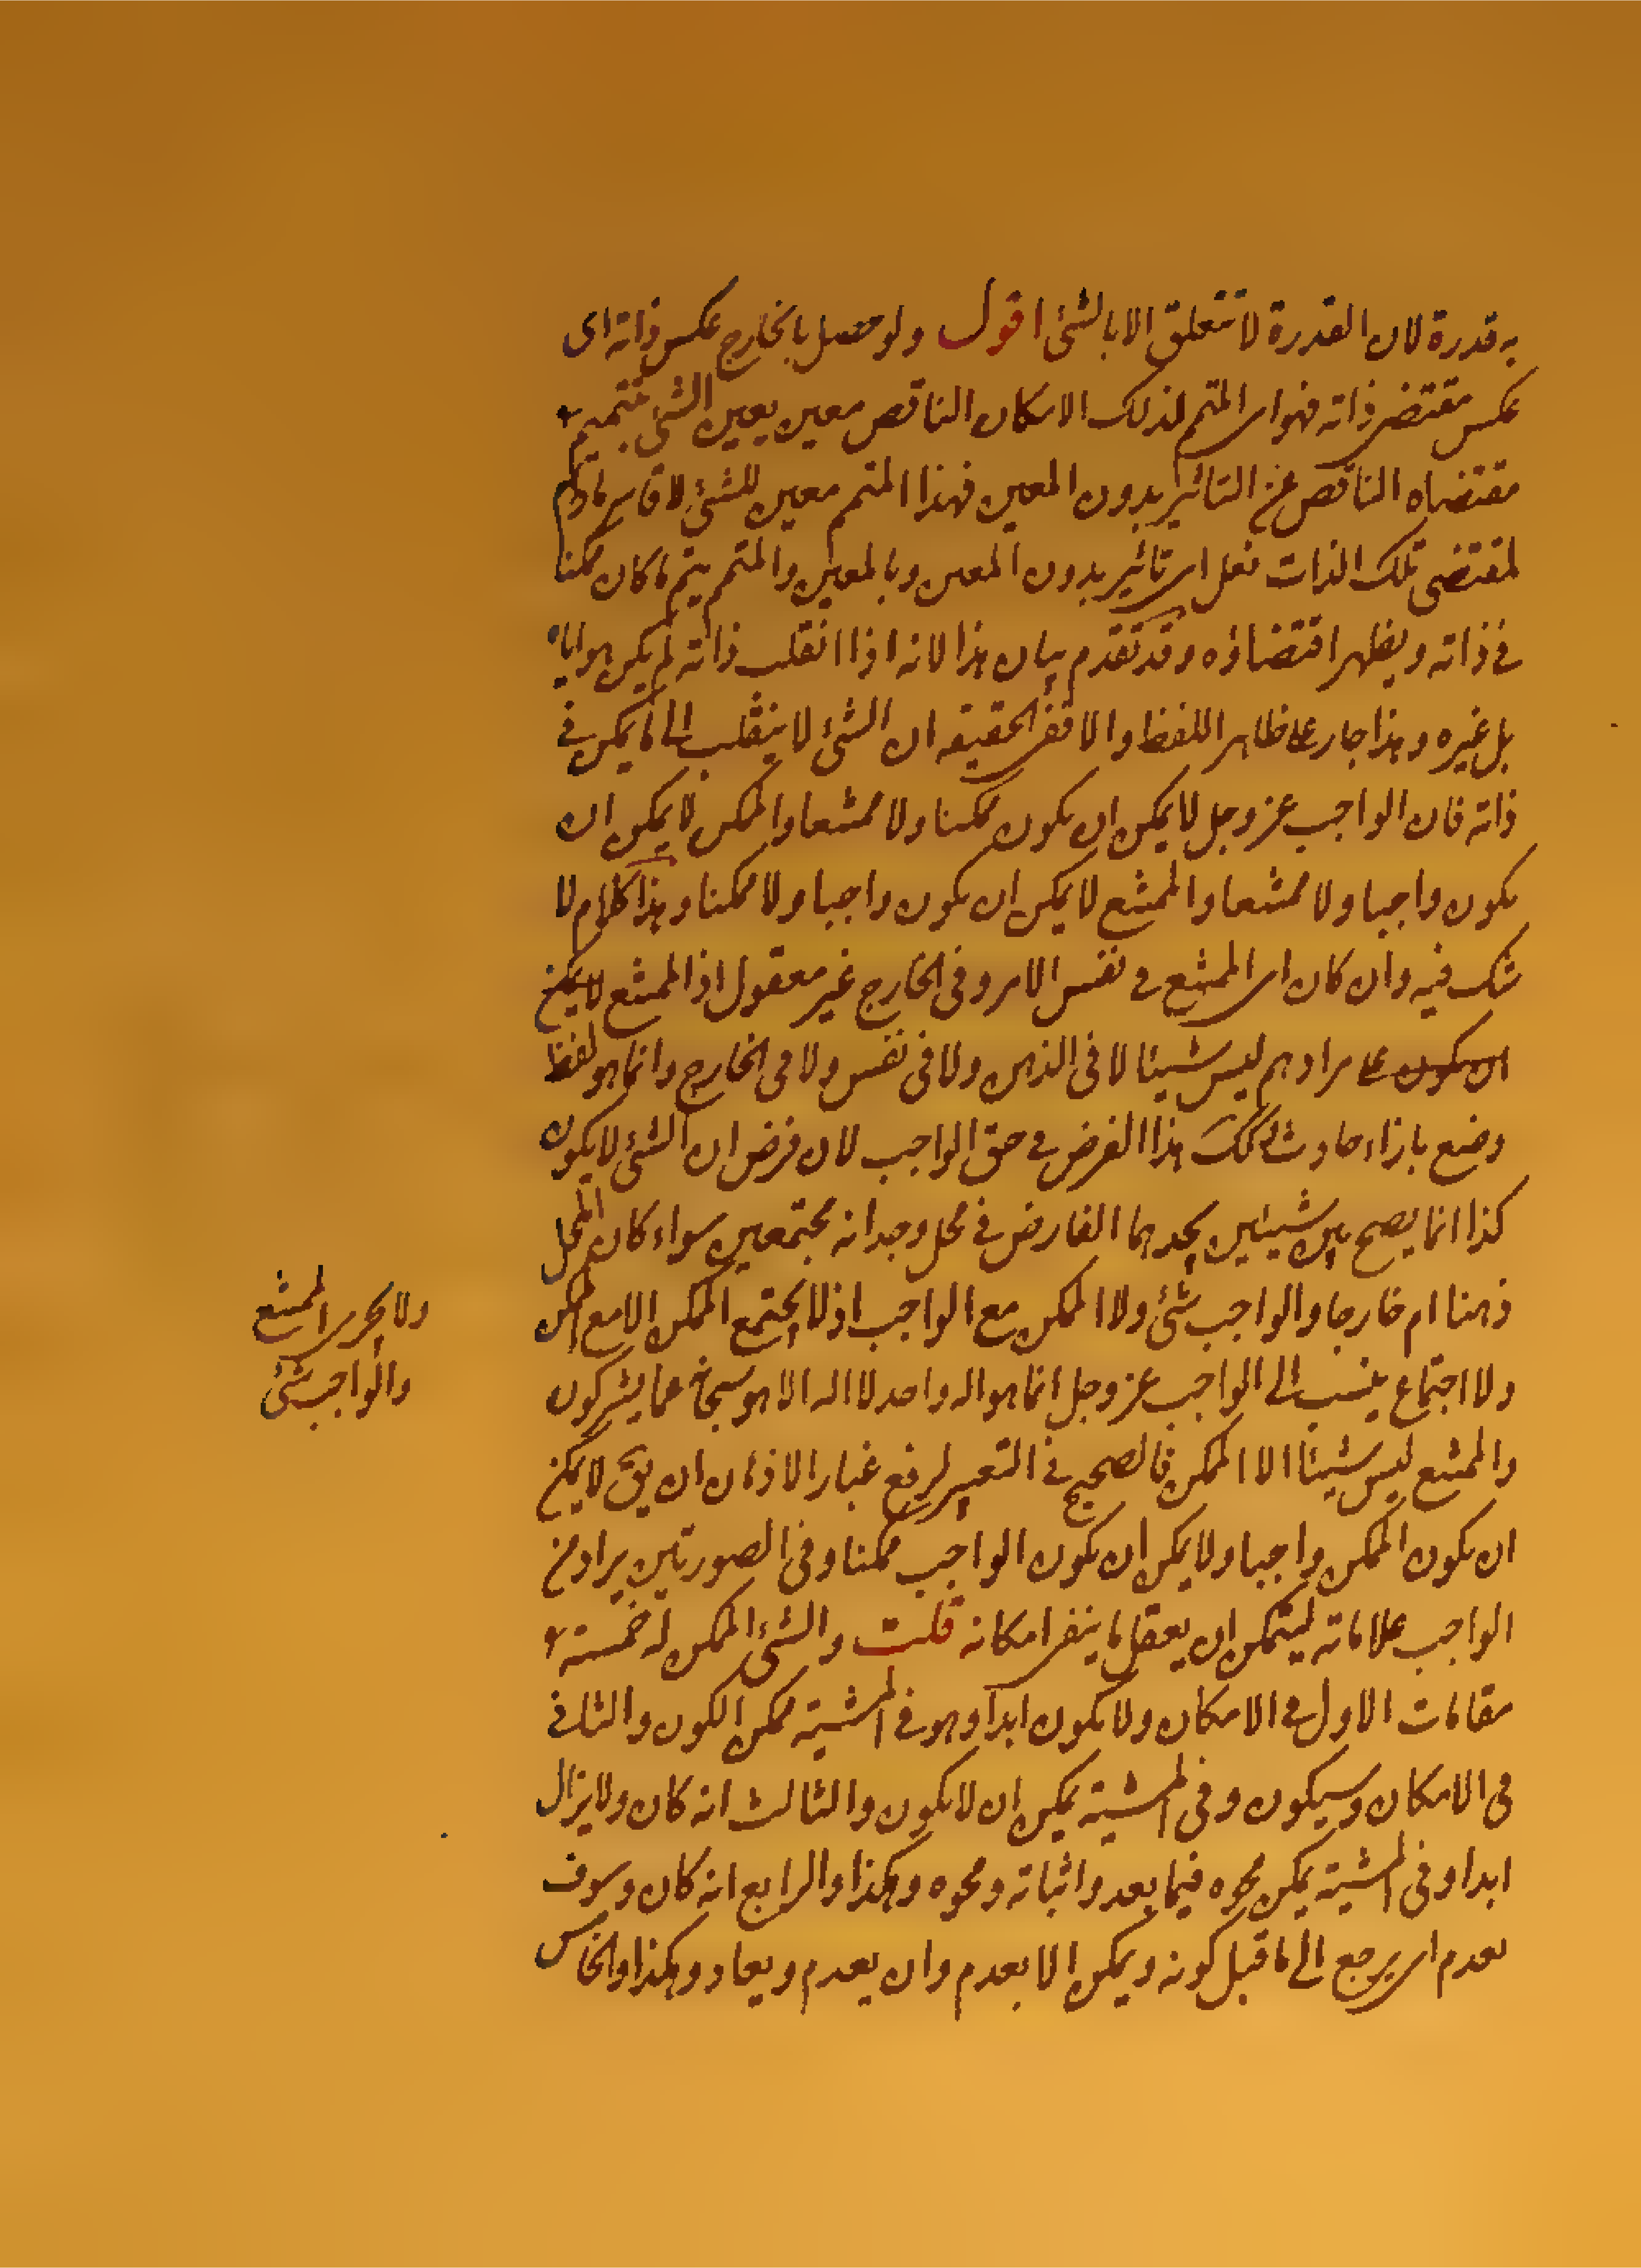 به قدرة لان القدرة لا تتعلق الا بالشئ اقول ولو حصل بالخارج عكس ذاته اى
عكس مقتضى ذاته فهو اى المتمم لذلك الامكان الناقص معين يعين الشئ بتتميم
مقتضاه الناقص عن التاثير بدون المعين فهذا المتمم معين للشئ لا قاسر مادام
لمقتضى تلك الذات فعل اى تاثير بدون المعين وبالمعين والمتمم يتم ما كان ممكنا
فى ذاته ويظهر اقتضاؤه وقد تقدم بيان هذا لانه اذا انقلب ذاته لم يكن هو اياه
بل غيره وهذا جار على ظاهر اللفظ والا ففى الحقيقه ان الشئ لا ينقلب الى ما يمكن فى
ذاته فان الواجب عز وجل لا يمكن ان يكون ممكنا ولا ممتنعا والممكن لا يمكن ان
يكون واجبا ولا ممتنعا والممتنع لا يمكن ان يكون واجبا ولا ممكنا وهذا كلام لا
شك فيه وان كان اى الممتنع فى نفس الامر وفى الخارج غير معقول اذ الممتنع لا يمكن
ان يكون على مرادهم ليس شيئا لا فى الذهن ولا فى نفس ولا فى الخارج وانما هو لفظ
وضع بازاء حادث كك هذا الفرض فى حق الواجب لان فرض ان الشئ لا يكون
كذا انما يصح بين شيئين يجدهما الفارض فى محل وجدانه مجتمعين سواء كان المحل
ذهنا ام خارجا والواجب شئ ولا الممكن مع الواجب اذ لا يجتمع الممكن الا مع الممكن
ولا اجتماع ينسب الى الواجب عز وجل انما هو اله واحد لا اله الا هو سبحانه عما يشركون
والممتنع ليس شيئا الا الممكن فالصحيح فى التعبير لرفع غبار الاذهان ان يق لا يمكن
ان يكون الممكن واجبا ولا يمكن ان يكون الواجب ممكنا وفى الصورتين يراد من
الواجب علاماته ليتمكن ان يعقل ما ينفى امكانه قلت والشئ الممكن له خمسة
مقامات الاول فى الامكان ولا يكون ابدا وهو فى المشية ممكن الكون والثانى
فى الامكان وسيكون وفى المشية يمكن ان لا يكون والثالث انه كان ولا يزال
ابدا وفى المشية يمكن محوه فيما بعد واثباته ومحوه وهكذا والرابع انه كان وسوف
يعدم اى يرجع الى ما قبل كونه ويمكن الا يعدم وان يعدم ويعاد وهكذا والخامس
ولا يجرى الممتنع
والواجب شئ